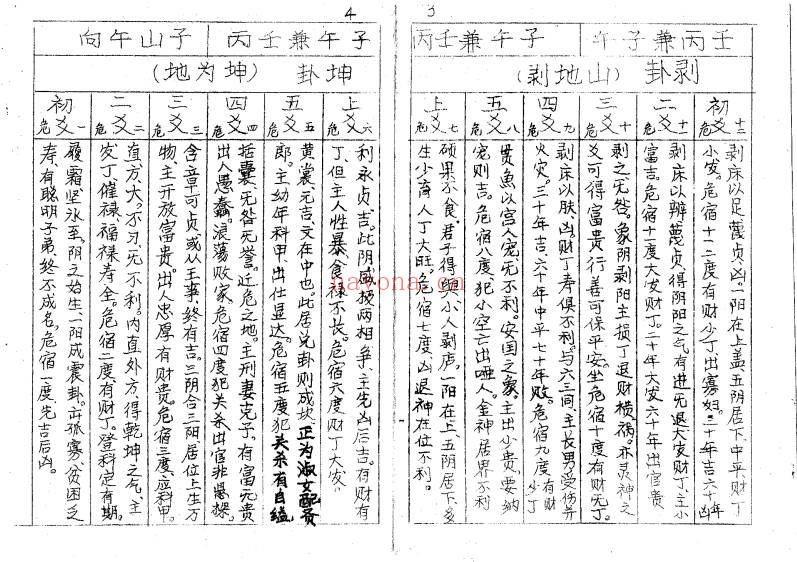 3
壬丙兼子午
子午兼壬丙
剥卦(山地剥)
初爻
危十二
剥床以足蔑贞凶。一阳在上盖五阴居下,中平财丁
小发。危宿十二度有财少丁出寡妇。三十年吉六十年凶
二爻
危十一
剥床以辨蔑贞得阴阳之气有进无退大发财丁。主小
富吉。危宿十一度大发财丁。二十年大发六十年出官贵
三爻
危十
剥之无咎。象阴剥阳主损丁退财横祸。亦灵神之
爻可得富贵行善可保平安。坐危宿十度有财无丁。
四爻
危九
剥床以肤凶财丁寿俱不利。与六三间,主长男受伤并
火灾。三十年吉,六十年中平七十年败。危宿九度有财少丁
五爻
危八
贯鱼以宫人宠无不利。安国之象,主出少贵,要纳
宠则吉。危宿八度犯小空亡出哑人。金神居界不利
上爻
危七初
硕果不食,君子得舆小人剥庐。一阳在上五阴居下多
生少育人丁大旺。危宿七度凶退神在位不利。
4
子午兼壬丙
子山午向
坤卦(坤为地)
上爻
危六
利永贞,吉。此阴盛极两相争,主先凶后吉。有财有
丁,但主人性暴,食禄不长。危宿六度财丁大发。
五爻
危五
黄裳,元吉,文在中也此居兑卦则成坎。正为淑女配贵
郎。主幼年科甲,出仕显达。危宿五度犯关杀有自缢
四爻
危四
括囊,无咎无誉。近危之地。主刑妻克子。有富无贵
出人愚蠢,浪荡败家。危宿四度犯关杀出官非悬樑。
三爻
危三
含章可贞或从王事,终有吉。三阴合三阳,居位上生万
物,主开放富贵。出人忠厚有财贵。危宿三度,应科甲。
二爻
危二
直,方,大。不习,无不利。内直外方,得乾坤之气,主
发丁催禄,福禄寿全。危宿二度有财丁。登科定有期。
初爻
危一
履霜坚冰至。阴之始生,一阳成震卦。亦孤寡贫困乏
寿有聪明子弟终不成名,危宿一度先吉后凶。
nayona.cn